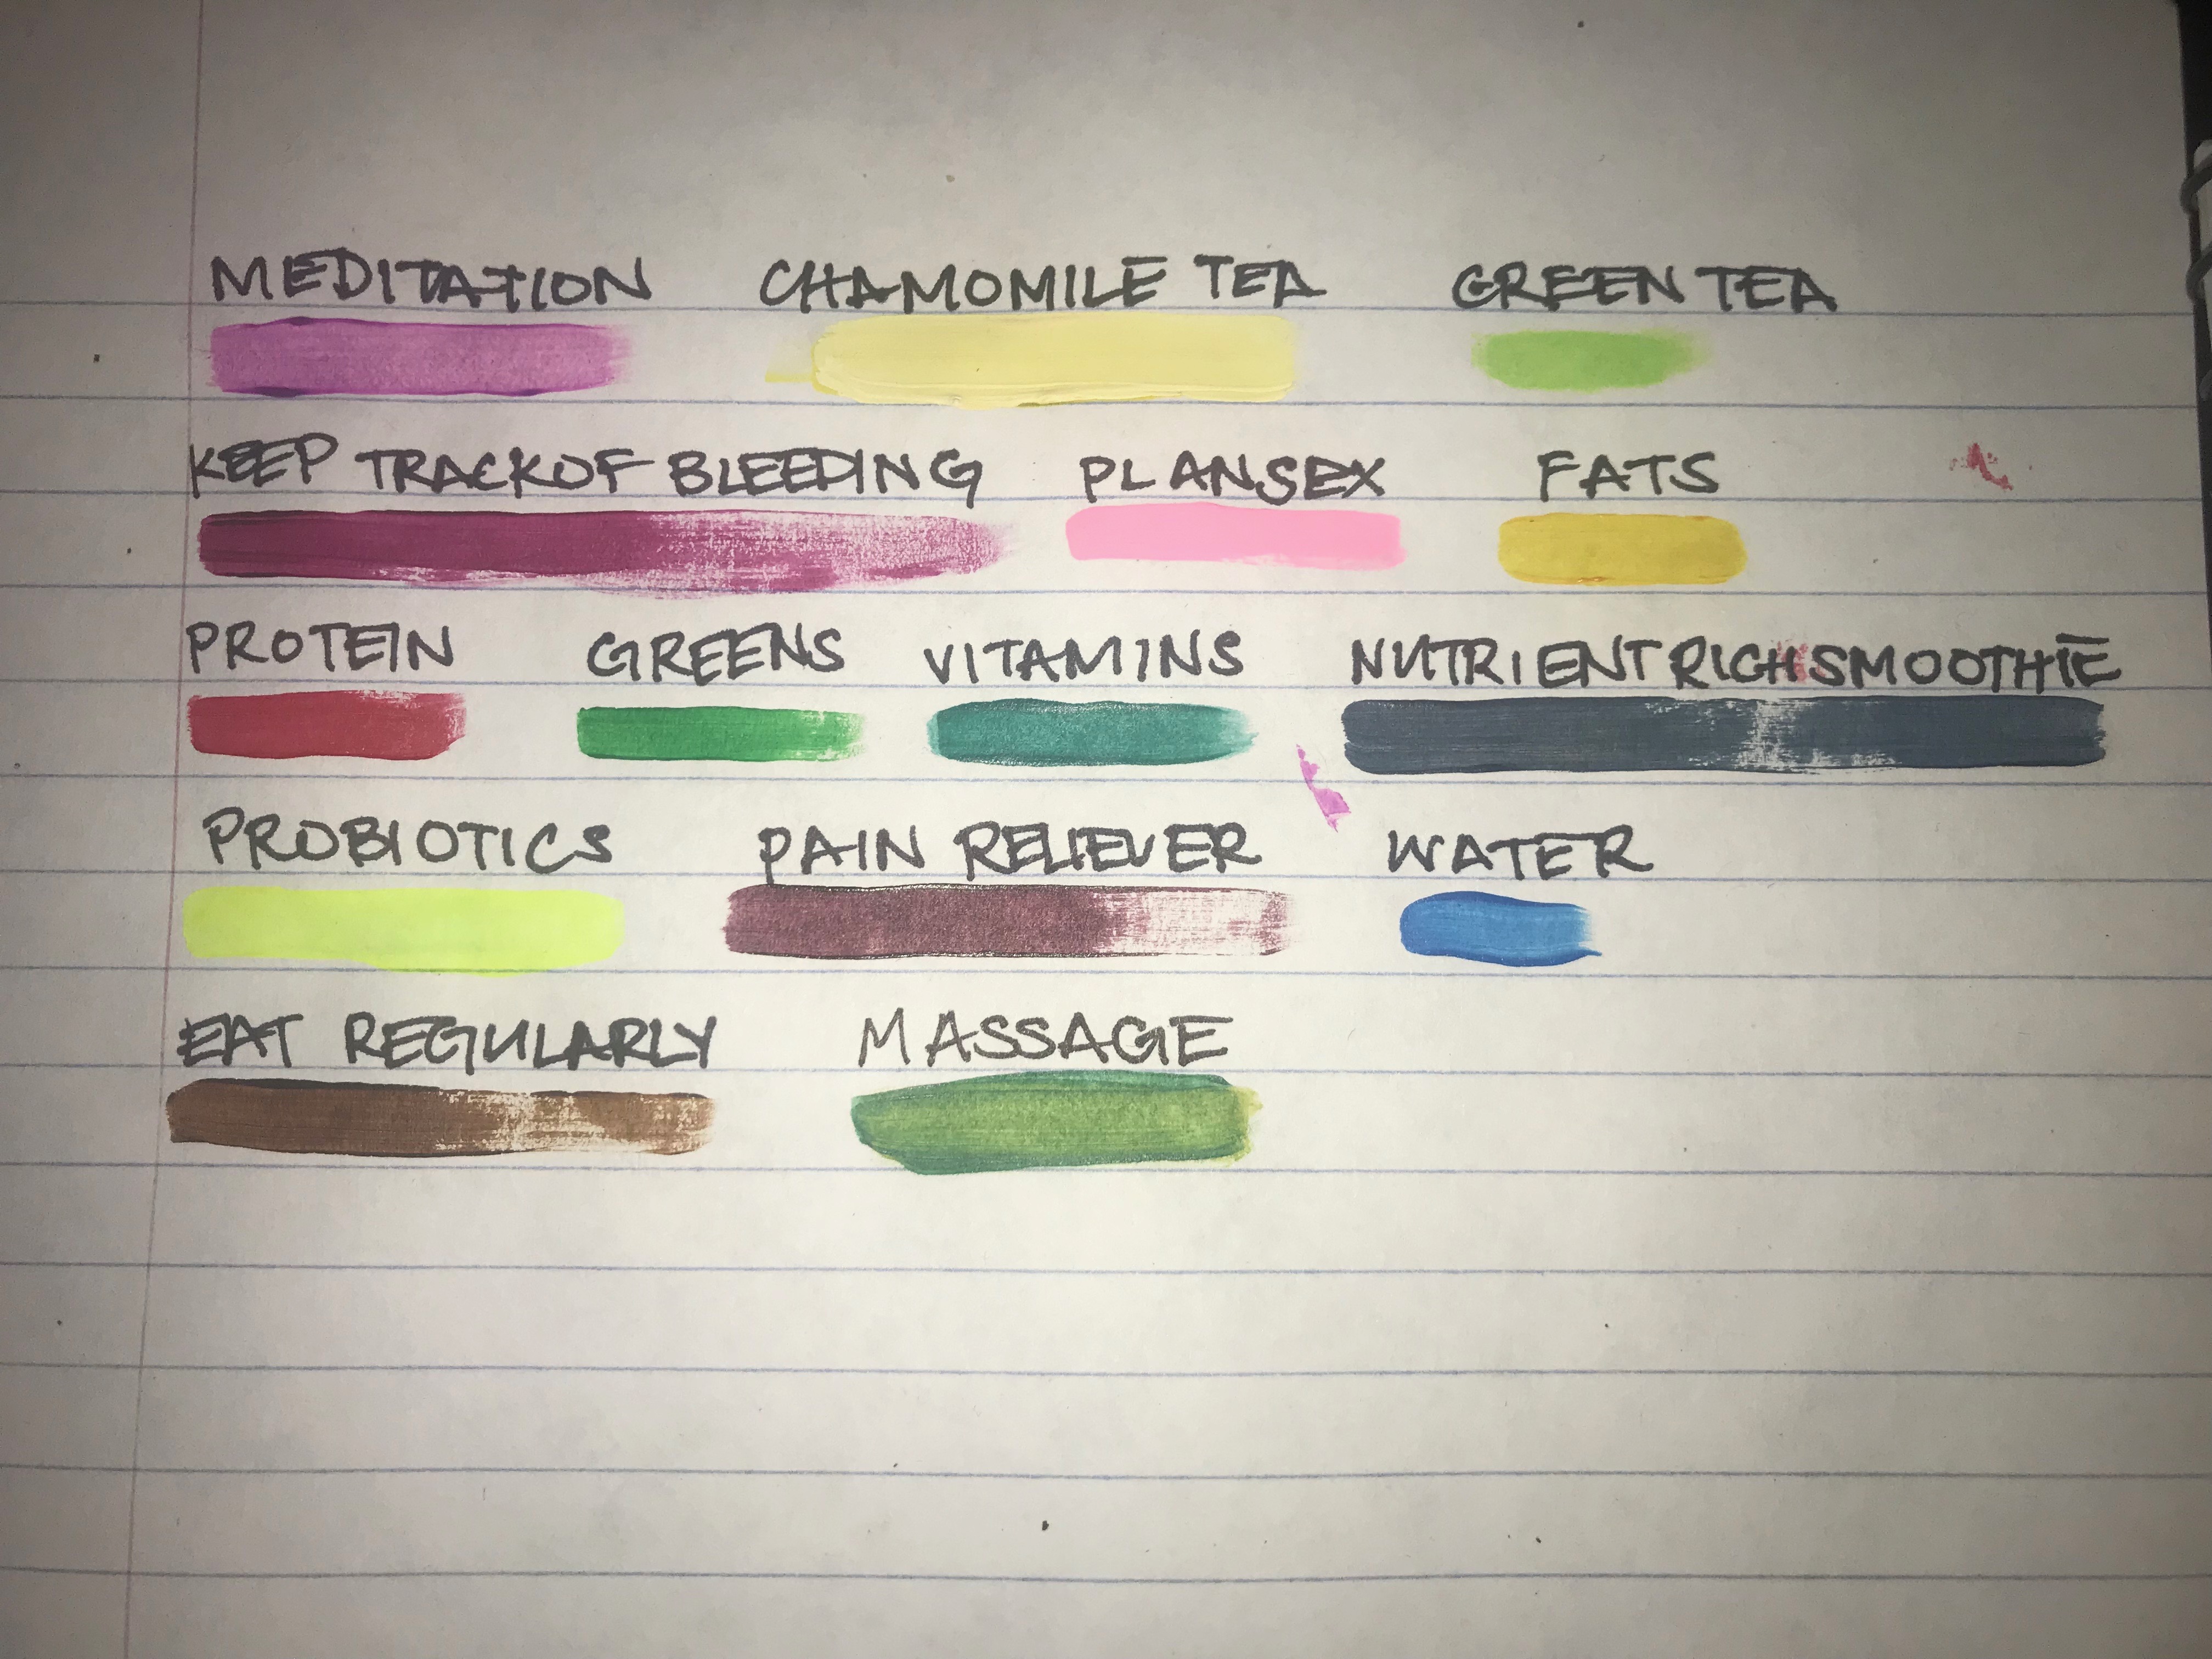 MEDITATION CHAMOMILE TEA GREEN TEA
KEEP TRACK OF BLEEDING PLAN SEX FATS
PROTEIN GREENS VITAMINS NUTRIENT RICH SMOOTHIE
PROBIOTICS PAIN RELIEVER WATER
EAT REGULARLY MASSAGE